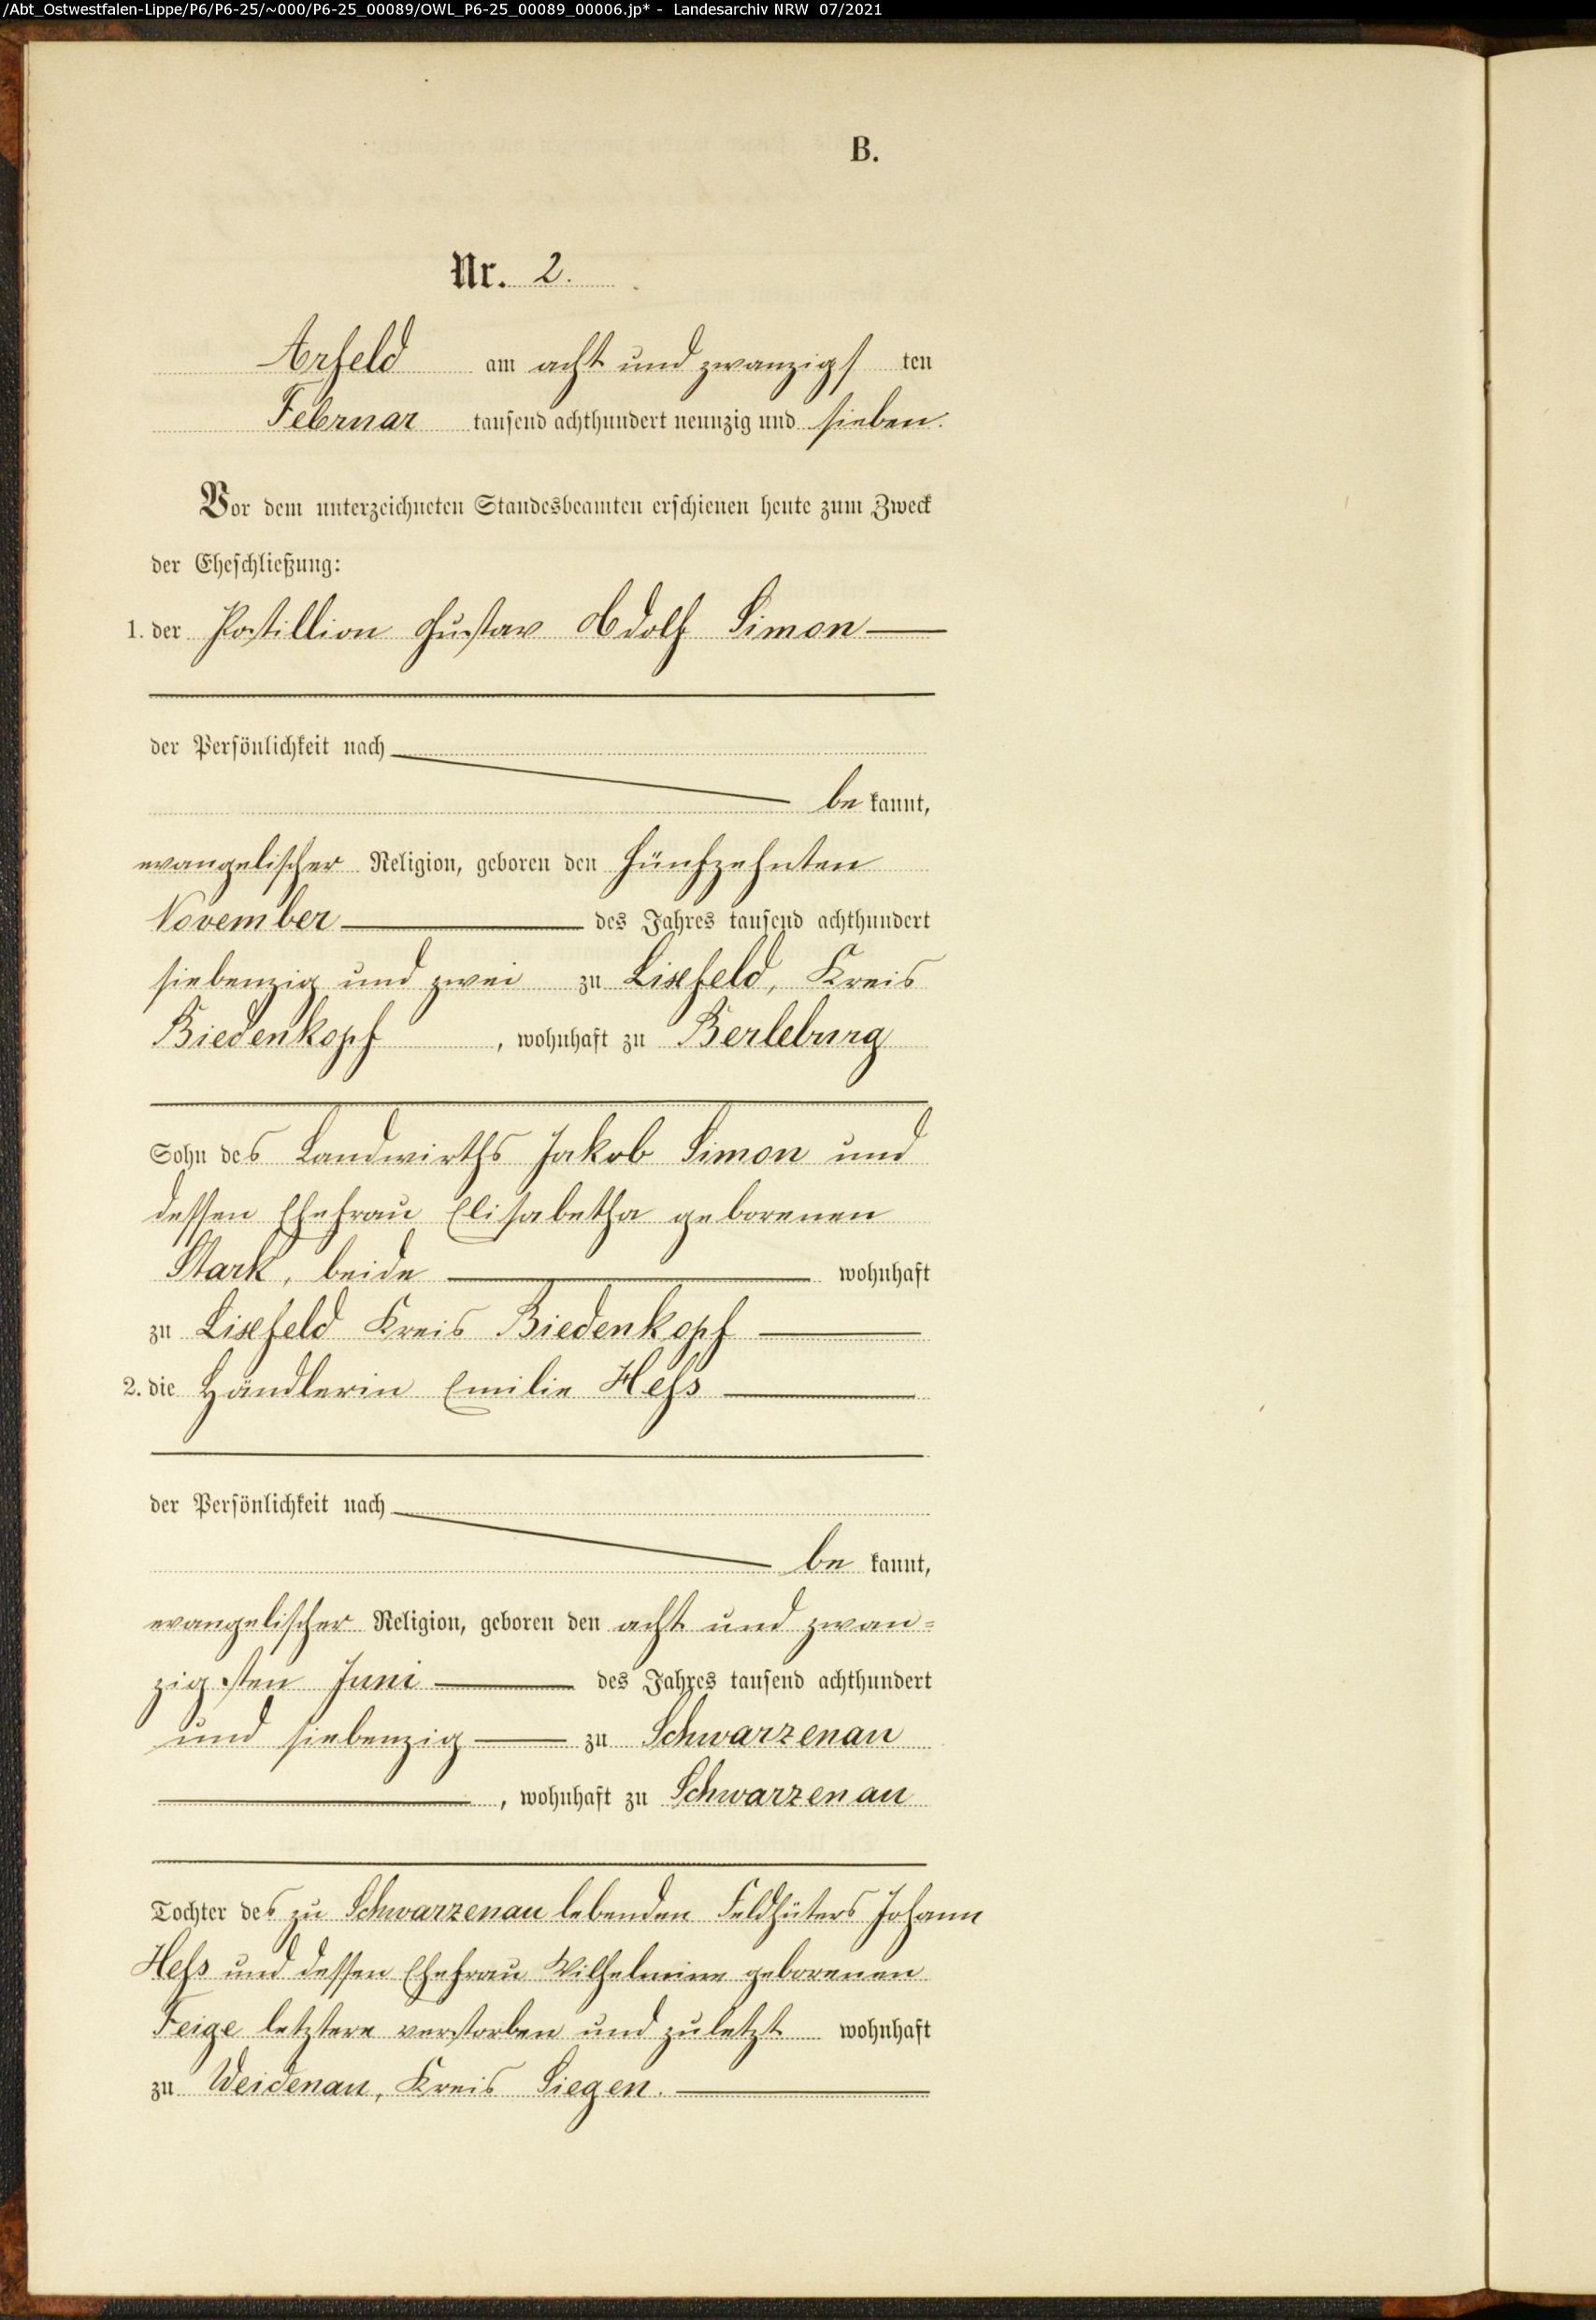 /Abt_Ostwestfalen-Lippe/P6/P6-25/~000/P6-25_00089/OWL_P6-25_00089_00006.jp* - Landesarchiv NRW 07/2021
B.
Nr. 2.
Arfeld am acht und zwanzigs ten
Februar tausend achthundert neunzig und sieben.
Vor dem unterzeichneten Standesbeamten erschienen heute zum Zweck
der Eheschließung:
1. der Postillion Gustav Adolf Simon
der Persönlichkeit nach
be kannt,
evangelischer Religion, geboren den fünfzehnten
November des Jahres tausend achthundert
siebenzig und zwei zu Lixfeld, Kreis
Biedenkopf, wohnhaft zu Berleburg
Sohn des Landwirths Jakob Simon und
dessen Ehefrau Elisabetha geborenen
Stark, beide wohnhaft
zu Lixfeld Kreis Biedenkopf
2. die Händlerin Emilie Heß
der Persönlichkeit nach
be kannt,
evangelischer Religion, geboren den acht und zwan=
zigsten Juni des Jahres tausend achthundert
und siebenzig zu Schwarzenau
, wohnhaft zu Schwarzenau
Tochter des zu Schwarzenau lebenden Feldhüters Johann
Heß und dessen Ehefrau Wilhelmine geborenen
Feige letztere verstorben und zuletzt wohnhaft
zu Weidenau, Kreis Siegen.